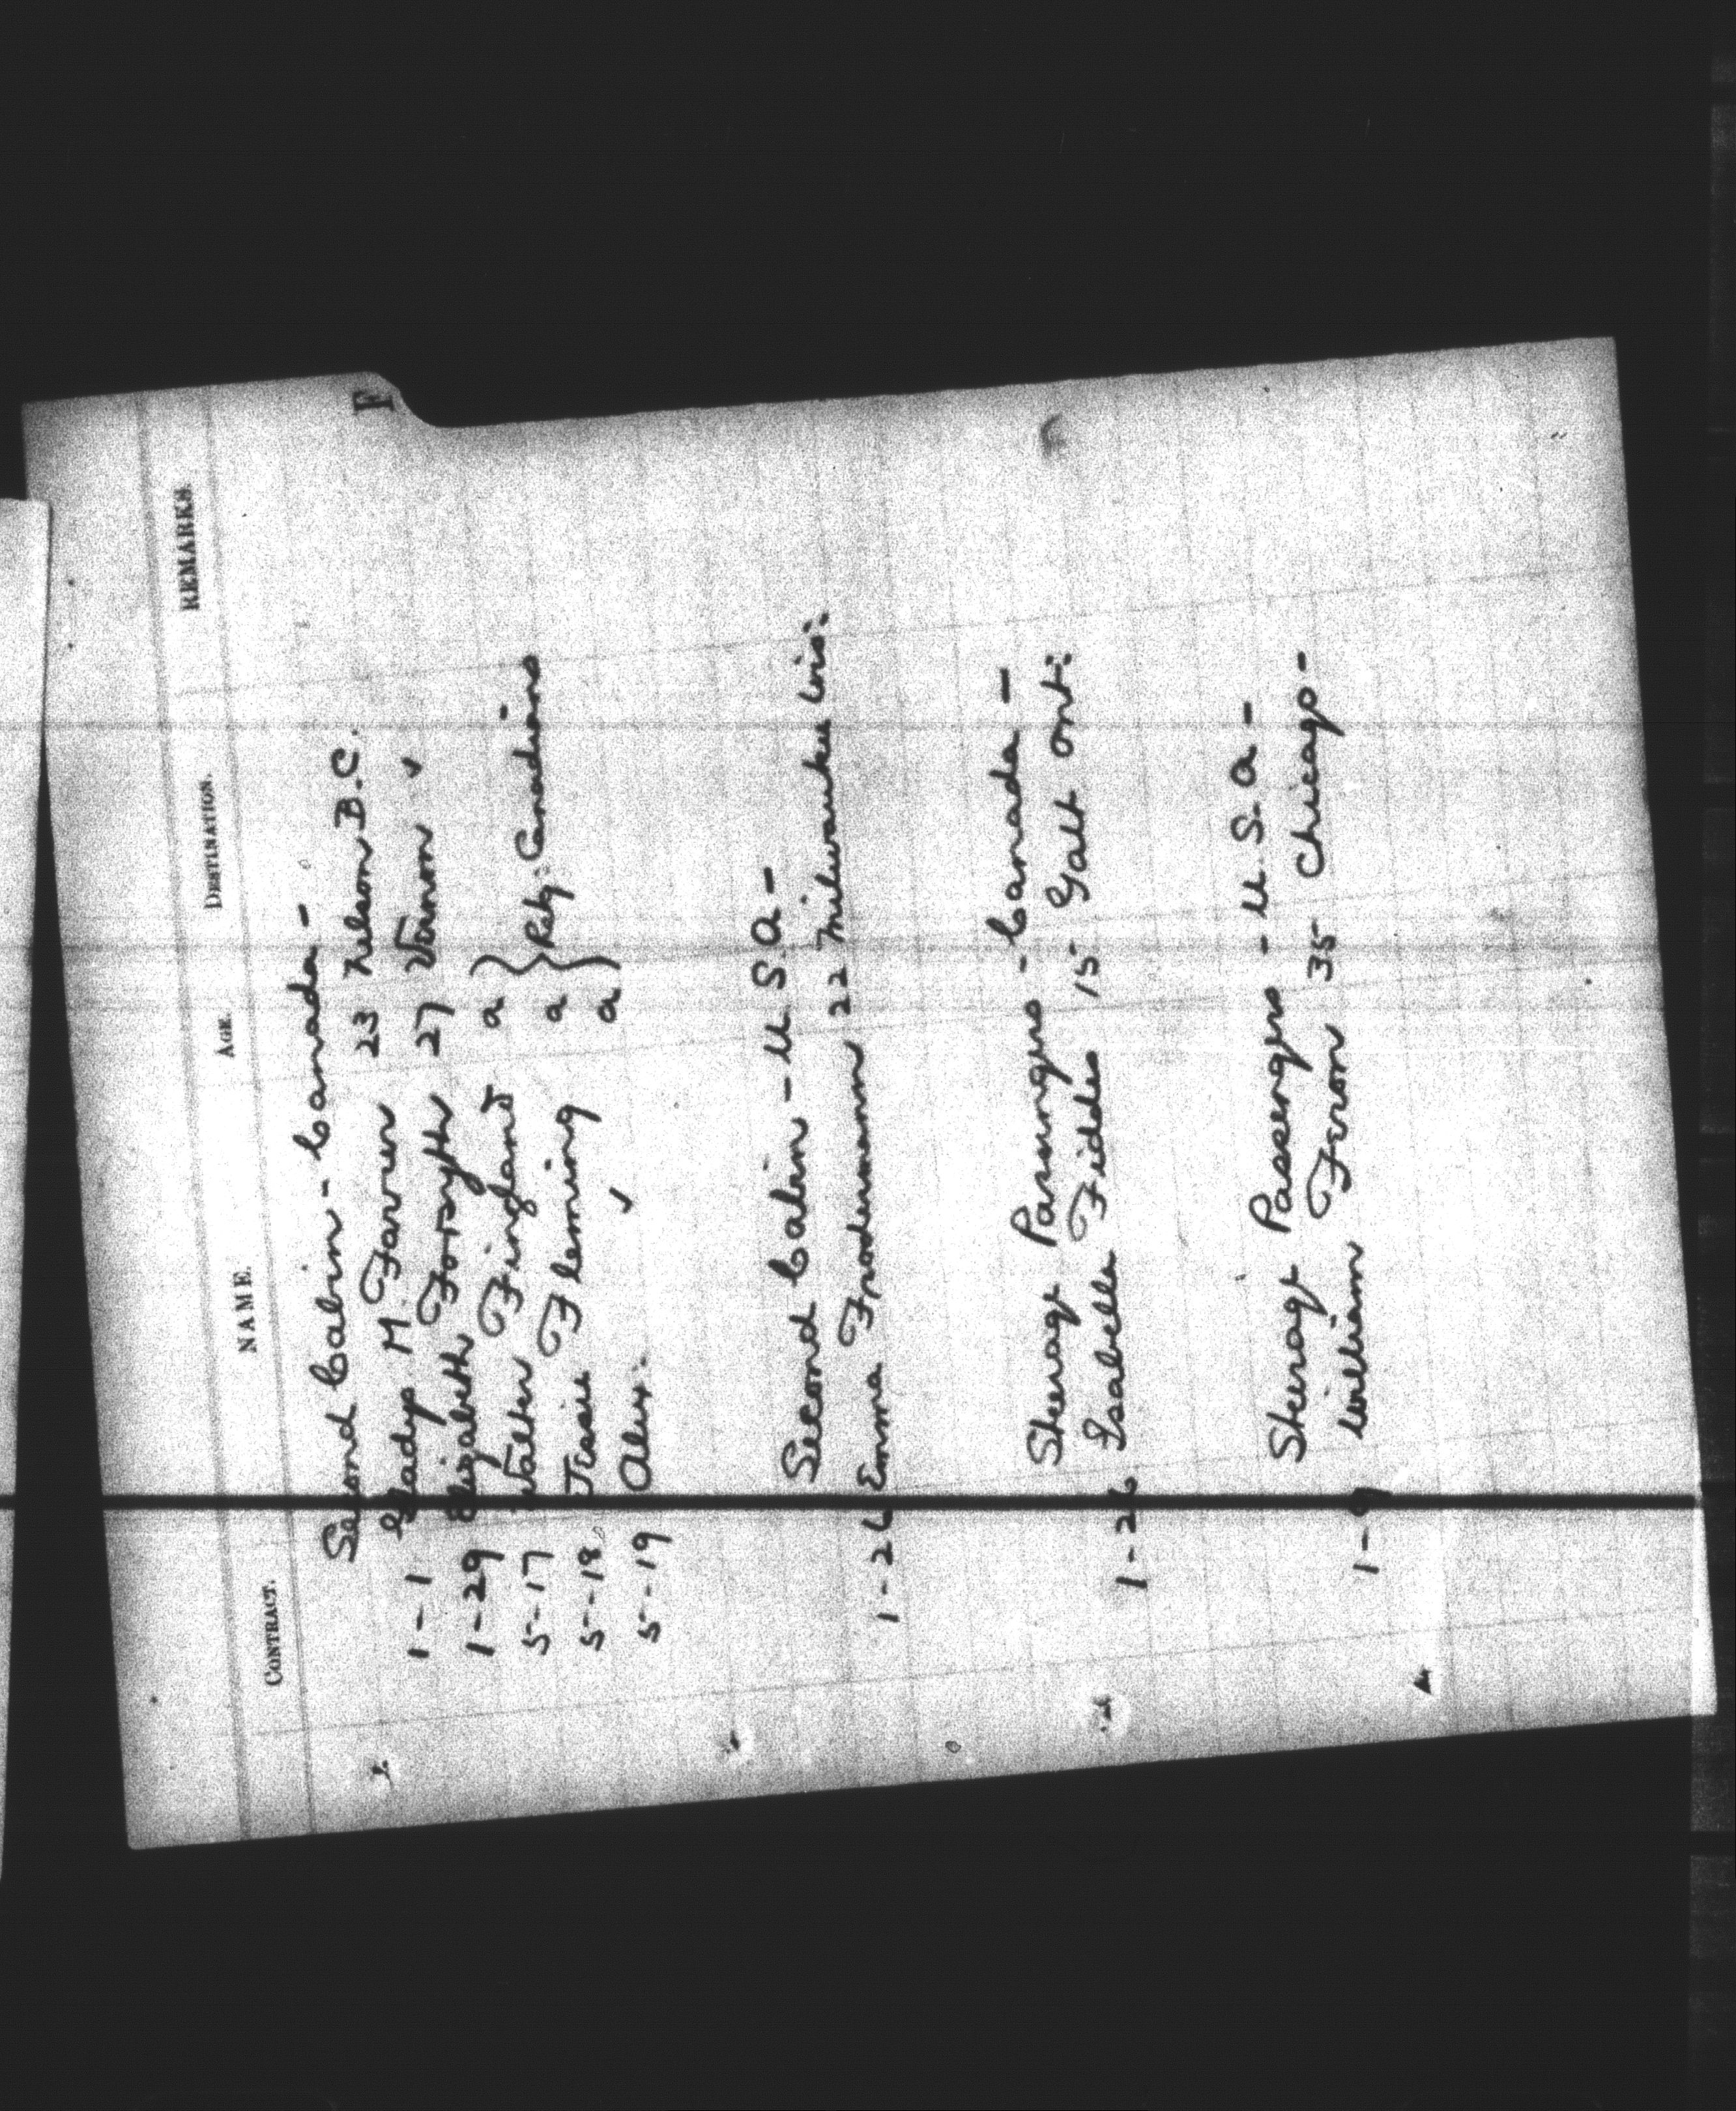 CONTRACT. NAME. AGE. DESTINATION. REMARKS.
F
Second Cabin - Canada -
1-1 Gladys M. Farrer 23 Nelson B.C.
1-29 Elizabeth Forsyth 27 Vernon ✓
5-17 Walter Fingland a
5-18 Jessie Fleming a } Retg: Canadians
5-19 Alex: ✓ a
Second Cabin - U.S.A -
1-26 Emma Frodermann 22 Milwaukee Wis:
Steerage Passengers - Canada -
1-26 Isabella Fiddes 15 Galt Ont:
Steerage Passengers - U.S.A -
1-9 William 35 Chicago -